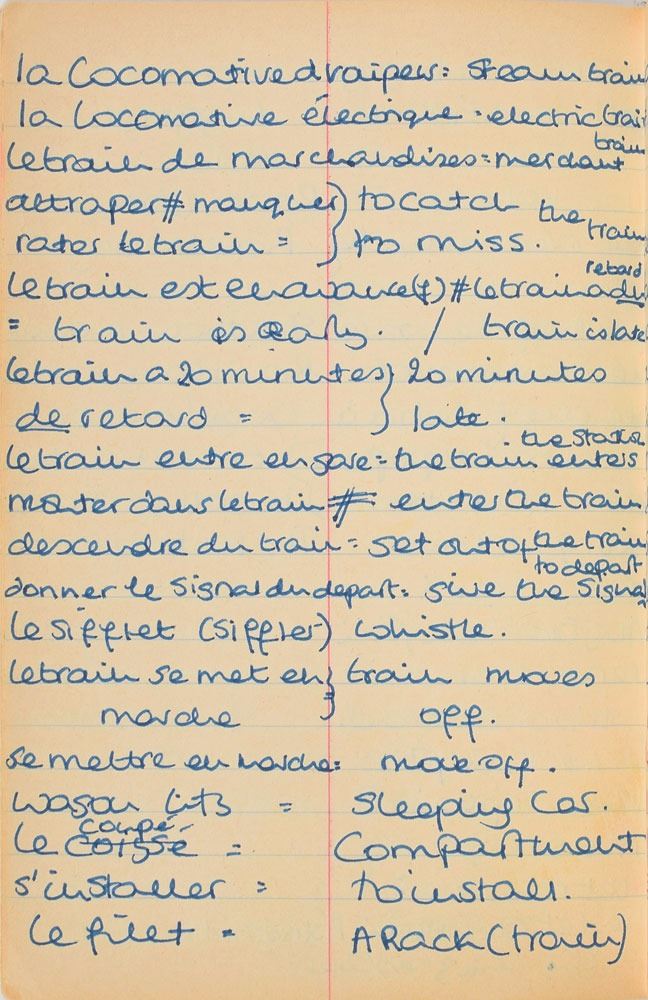 la Locomative d vaipeur: Steam train
la Locomative électrique · electric train
le train de marchandizes = merchant train
attraper # manquer } to catch the train
rater le train = } to miss.
le train est en avance (f) # le train a du retard
= train is early. / train is late
le train a 20 minutes } 20 minutes
de retard = } late.
le train entre en gare = the train enters the station
monter dans le train # enter the train
descendre du train = get out of the train
donner le signal du depart = give the signal to depart
le sifflet (siffler) whistle.
le train se met en } train moves
marche } off.
se mettre en marche = move off.
wagon lits = Sleeping Car.
Le coupé = Compartment
s'installer = to install.
Le filet = A Rack (train)